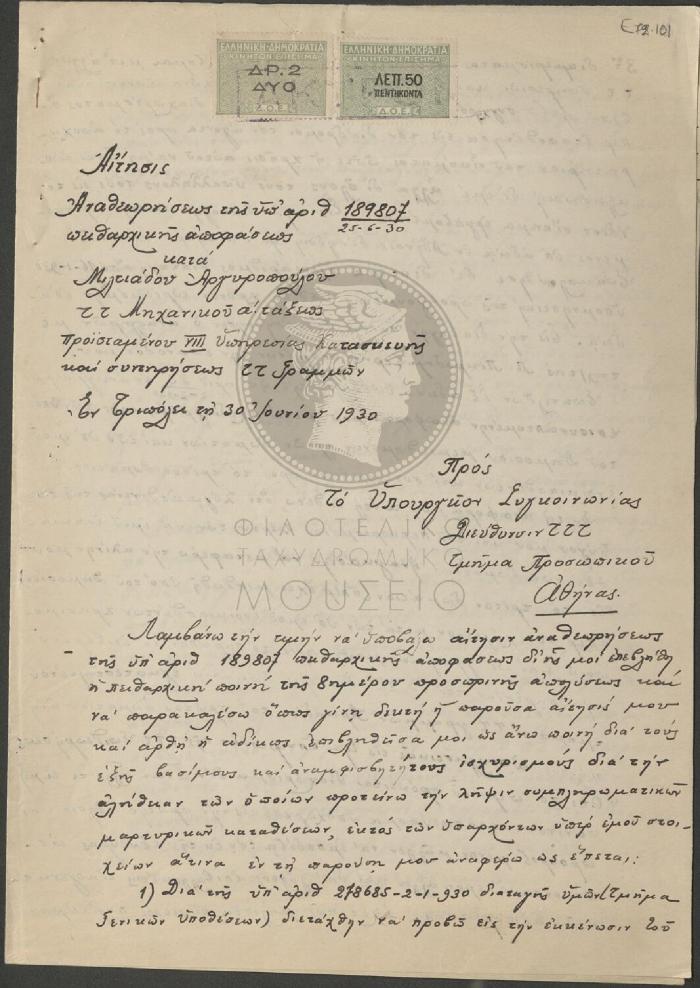 Ετ2.101
ΕΛΛΗΝΙΚΗ·ΔΗΜΟΚΡΑΤΙΑ
ΚΙΝΗΤΟΝ·ΕΠΙΣΗΜΑ
ΔΡ.2
ΔΥΟ
Δ.Ο.Ε.Σ
ΕΛΛΗΝΙΚΗ·ΔΗΜΟΚΡΑΤΙΑ
ΚΙΝΗΤΟΝ·ΕΠΙΣΗΜΑ
ΛΕΠ.50
ΠΕΝΤΗΚΟΝΤΑ
Δ.Ο.Ε.Σ
Αἴτησις
Ἀναθεωρήσεως τῆς ὑπ' ἀριθ 189807
25-6-30
πειθαρχικῆς ἀποφάσεως
κατά
Μιλτιάδου Ἀργυροπούλου
ττ Μηχανικοῦ α' τάξεως
Προϊσταμένου VIII Ὑπηρεσίας Κατασκευῆς
καί συντηρήσεως ττ Γραμμῶν
Ἐν Τριπόλει τῇ 30 Ἰουνίου 1930
Πρός
Τό Ὑπουργεῖον Συγκοινωνίας
Διεύθυνσιν ΤΤΤ
Τμῆμα Προσωπικοῦ
Ἀθήνας.
ΦΙΛΟΤΕΛΙΚΟ
ΤΑΧΥΔΡΟΜΙΚΟ
ΜΟΥΣΕΙΟ
Λαμβάνω τήν τιμήν νά ὑποβάλω αἴτησιν ἀναθεωρήσεως
τῆς ὑπ' ἀριθ 189807 πειθαρχικῆς ἀποφάσεως δι' ἧς μοι ἐπεβλήθη
ἡ πειθαρχική ποινή τῆς 8ημέρου προσωρινῆς ἀπολύσεως καί
νά παρακαλέσω ὅπως γίνῃ δεκτή ἡ παροῦσα αἴτησίς μου
καί ἀρθῇ ἡ ἀδίκως ἐπιβληθεῖσα μοι ὡς ἄνω ποινή διά τούς
ἑξῆς βασίμους καί ἀναμφισβητήτους ἰσχυρισμούς διά τήν
ἀλήθειαν τῶν ὁποίων προτείνω τήν λῆψιν συμπληρωματικῶν
μαρτυρικῶν καταθέσεων, ἐκτός τῶν ὑπαρχόντων ὑπέρ ἐμοῦ στοι-
χείων ἅτινα ἐν τῇ παρούσῃ μου ἀναφέρω ὡς ἕπεται,:
1) Διά τῆς ὑπ' ἀριθ 278685-2-1-930 διαταγῆς ὑμῶν (Τμῆμα
Γενικῶν Ὑποθέσεων) διετάχθην νά προβῶ εἰς τήν ἐκκένωσιν τοῦ